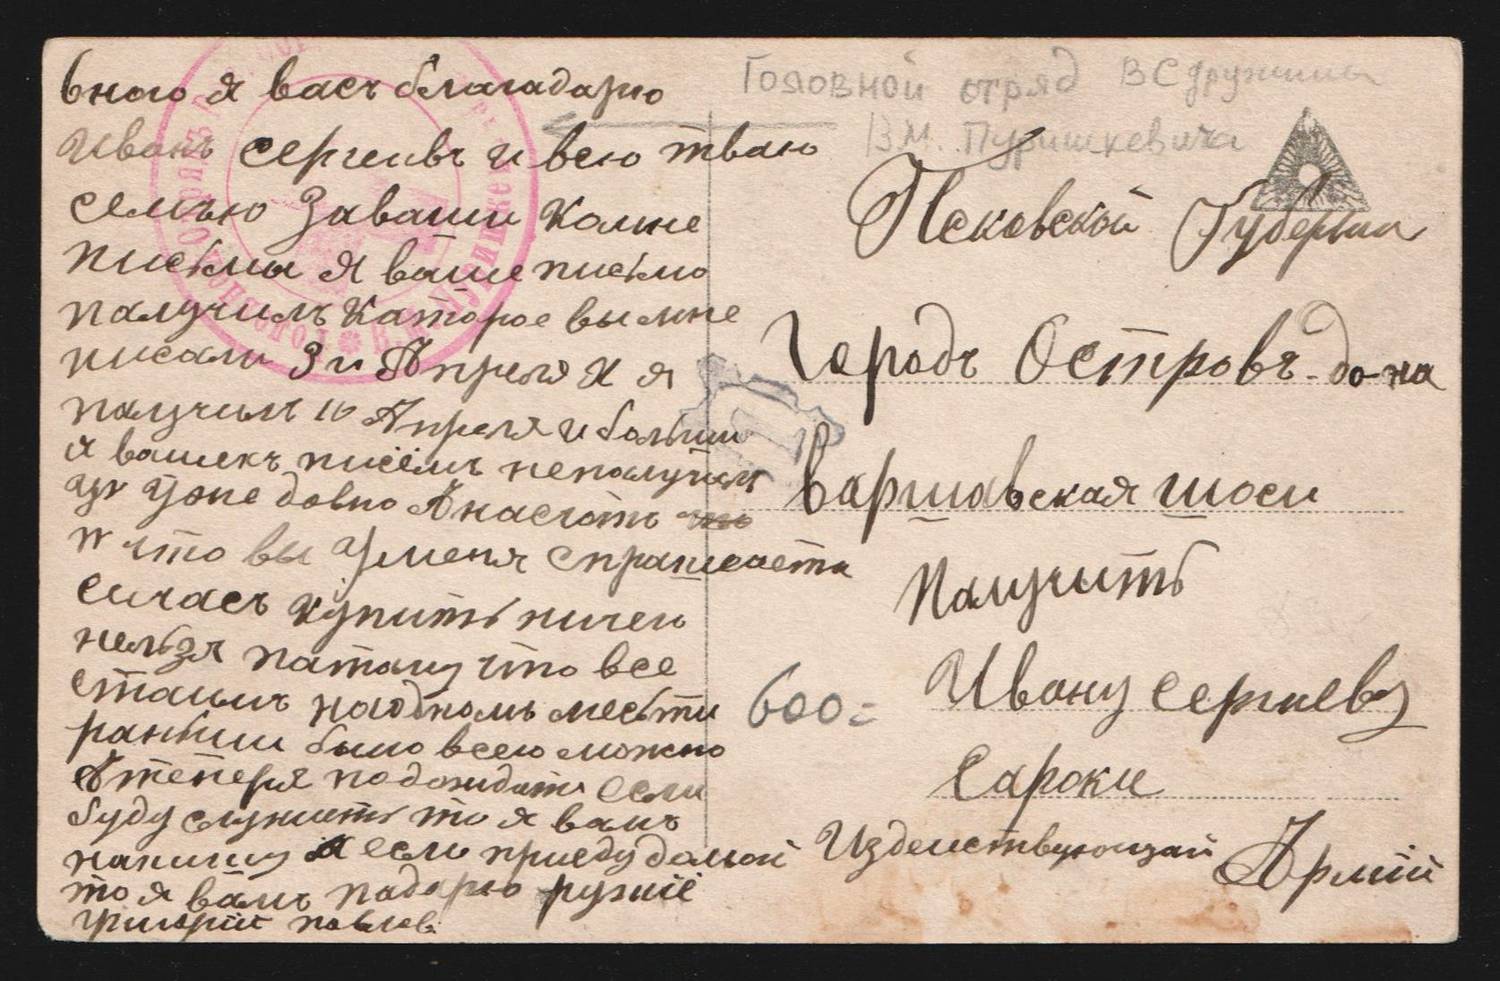 вного я васъ благадарю
Иванъ Сергеивъ и всю тваю
семъю Заваши Комне
письма я ваше письмо
палучилъ Каторое вы мне
писали 3и Апреля И я
палучилъ 10 Апреля и больши
я вашехъ писемъ неполучал
уже довно А насчотъ
и что вы Уменя спрашеваети
сичасъ купить ничего
нельзя патаму что все
стаимъ наодномъ месьти
раньши было всею можно
Атеперя подождати если
буду служить то я вамъ
напишу А если приеду дамой
то я вамъ падарю ружие
григорий павлов
Головной отряд ВС дружины
В.М. Пуришкевича
Псковской Губернии
Городъ Островъ. до-на
Варшавская шоси
Палучить
Ивану Сергиеву
Сароки
Издействующай Армий
600=
ГОЛОВНОЙ ОТРЯДЪ
В. М. ПУРИШКЕВ